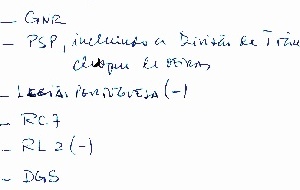 - GNR
- PSP, incluindo a Divisão de Trân
de
- LEGIÃO PORTUGUESA (-)
- RC.7
- RL 2 (-)
- DGS